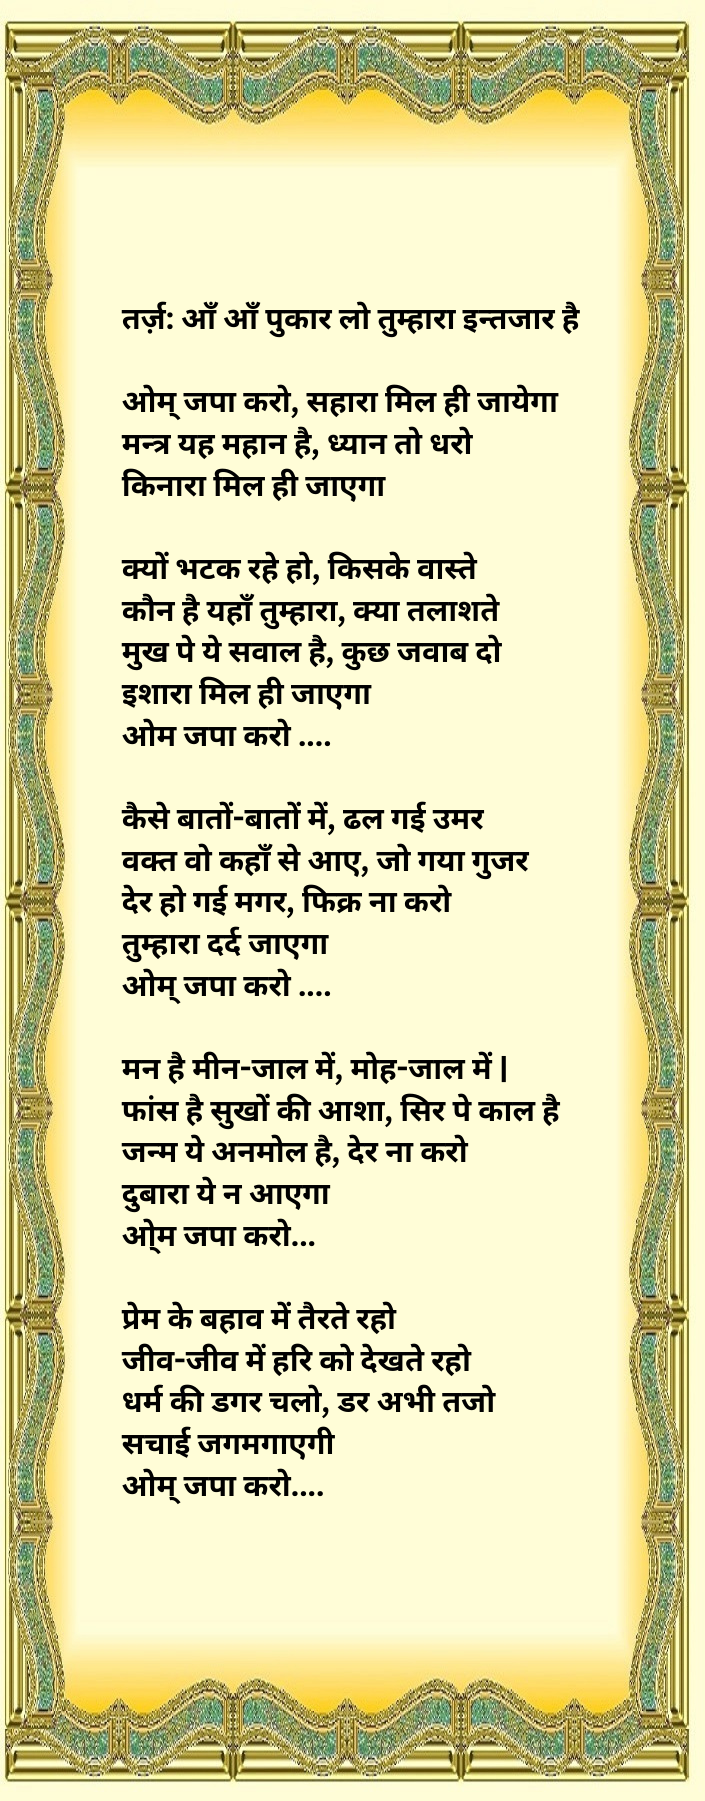 तर्ज़: आँ आँ पुकार लो तुम्हारा इन्तजार है
ओम् जपा करो, सहारा मिल ही जायेगा
मन्त्र यह महान है, ध्यान तो धरो
किनारा मिल ही जाएगा
क्यों भटक रहे हो, किसके वास्ते
कौन है यहाँ तुम्हारा, क्या तलाशते
मुख पे ये सवाल है, कुछ जवाब दो
इशारा मिल ही जाएगा
ओम जपा करो ....
कैसे बातों-बातों में, ढल गई उमर
वक्त वो कहाँ से आए, जो गया गुजर
देर हो गई मगर, फिक्र ना करो
तुम्हारा दर्द जाएगा
ओम् जपा करो ....
मन है मीन-जाल में, मोह-जाल में |
फांस है सुखों की आशा, सिर पे काल है
जन्म ये अनमोल है, देर ना करो
दुबारा ये न आएगा
ओ्म जपा करो...
प्रेम के बहाव में तैरते रहो
जीव-जीव में हरि को देखते रहो
धर्म की डगर चलो, डर अभी तजो
सचाई जगमगाएगी
ओम् जपा करो....